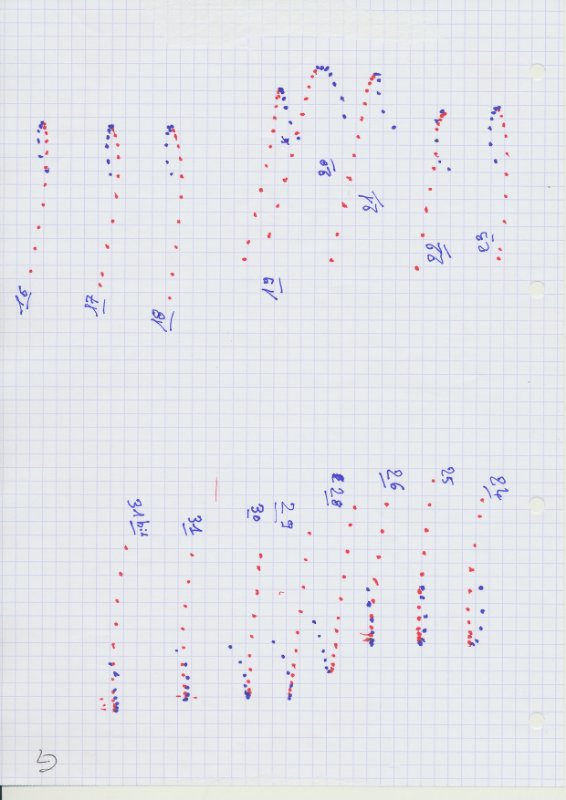 16
17
18
19
20
21
22
23
24
25
26
28
29
30
31
31bis